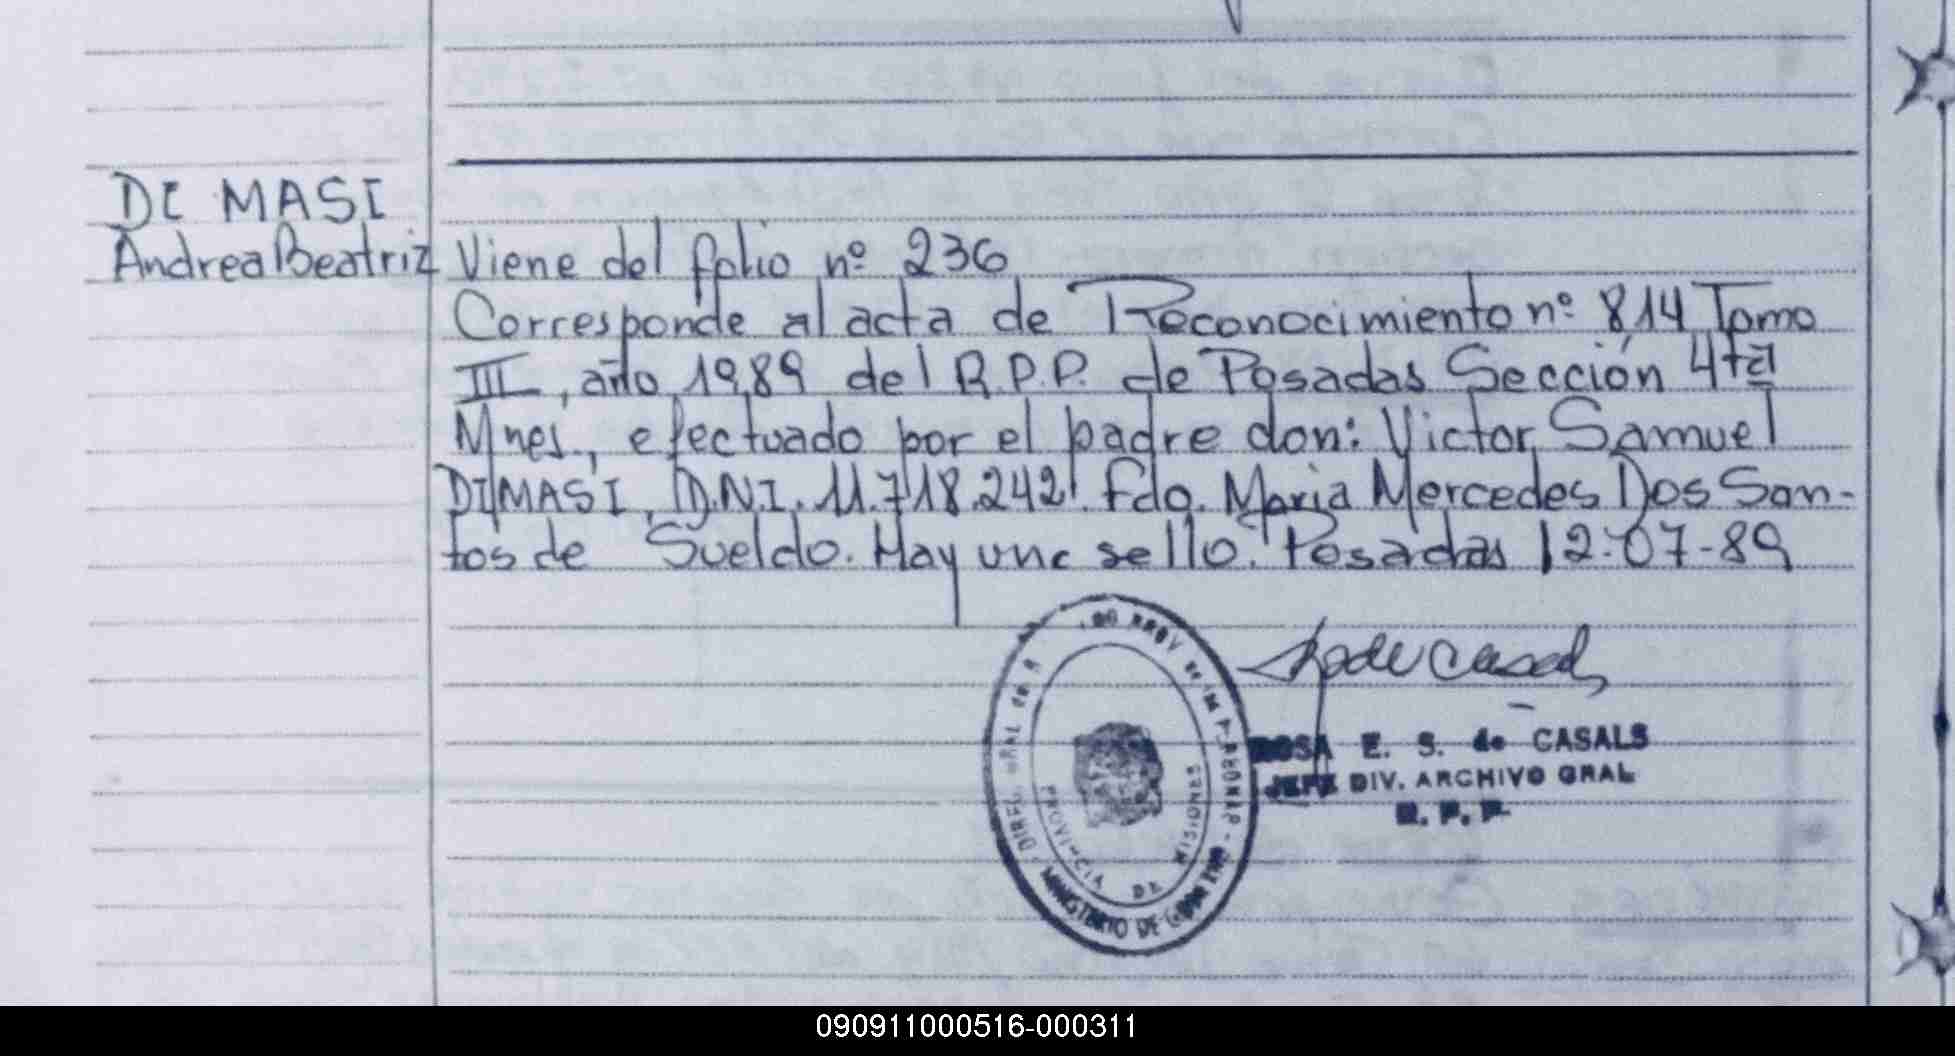 DI MASI
Andrea Beatriz
Viene del folio nº 236
Corresponde al acta de Reconocimiento nº 814 Tomo
III, año 1989 del R.P.P. de Posadas Sección 4ta
Mnes., efectuado por el padre don: Victor Samuel
DI MASI, D.N.I. 11.718.242. Fdo. Maria Mercedes Dos San-
tos de Sueldo. Hay un sello. Posadas 12-07-89
ROSA E. S. de CASALS
JEFE DIV. ARCHIVO GRAL
R. P. P
PROVINCIA DE MISIONES
MINISTERIO DE GOBIERNO
090911000516-000311